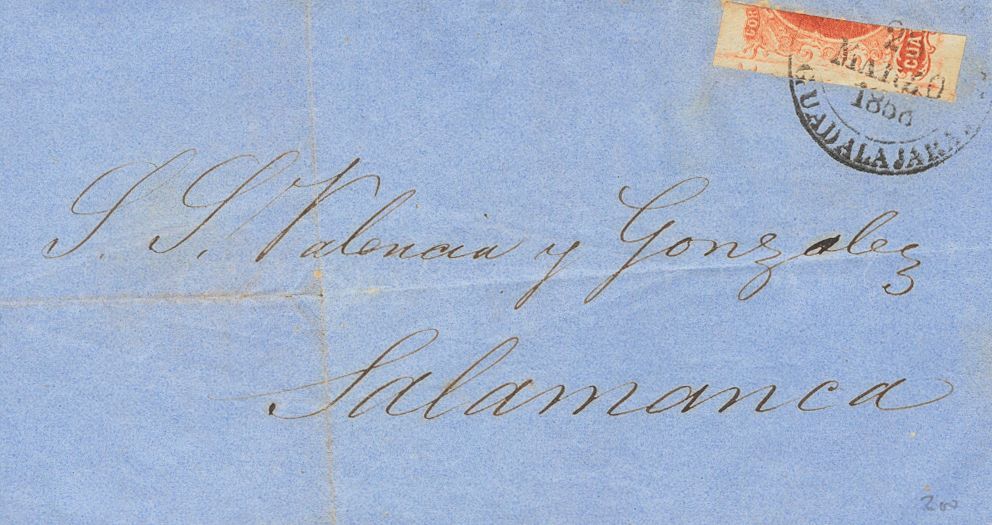 COR
CUA
MARZO
GUADALAJARA
S. S. Valencia y Gonzalez
Salamanca
200